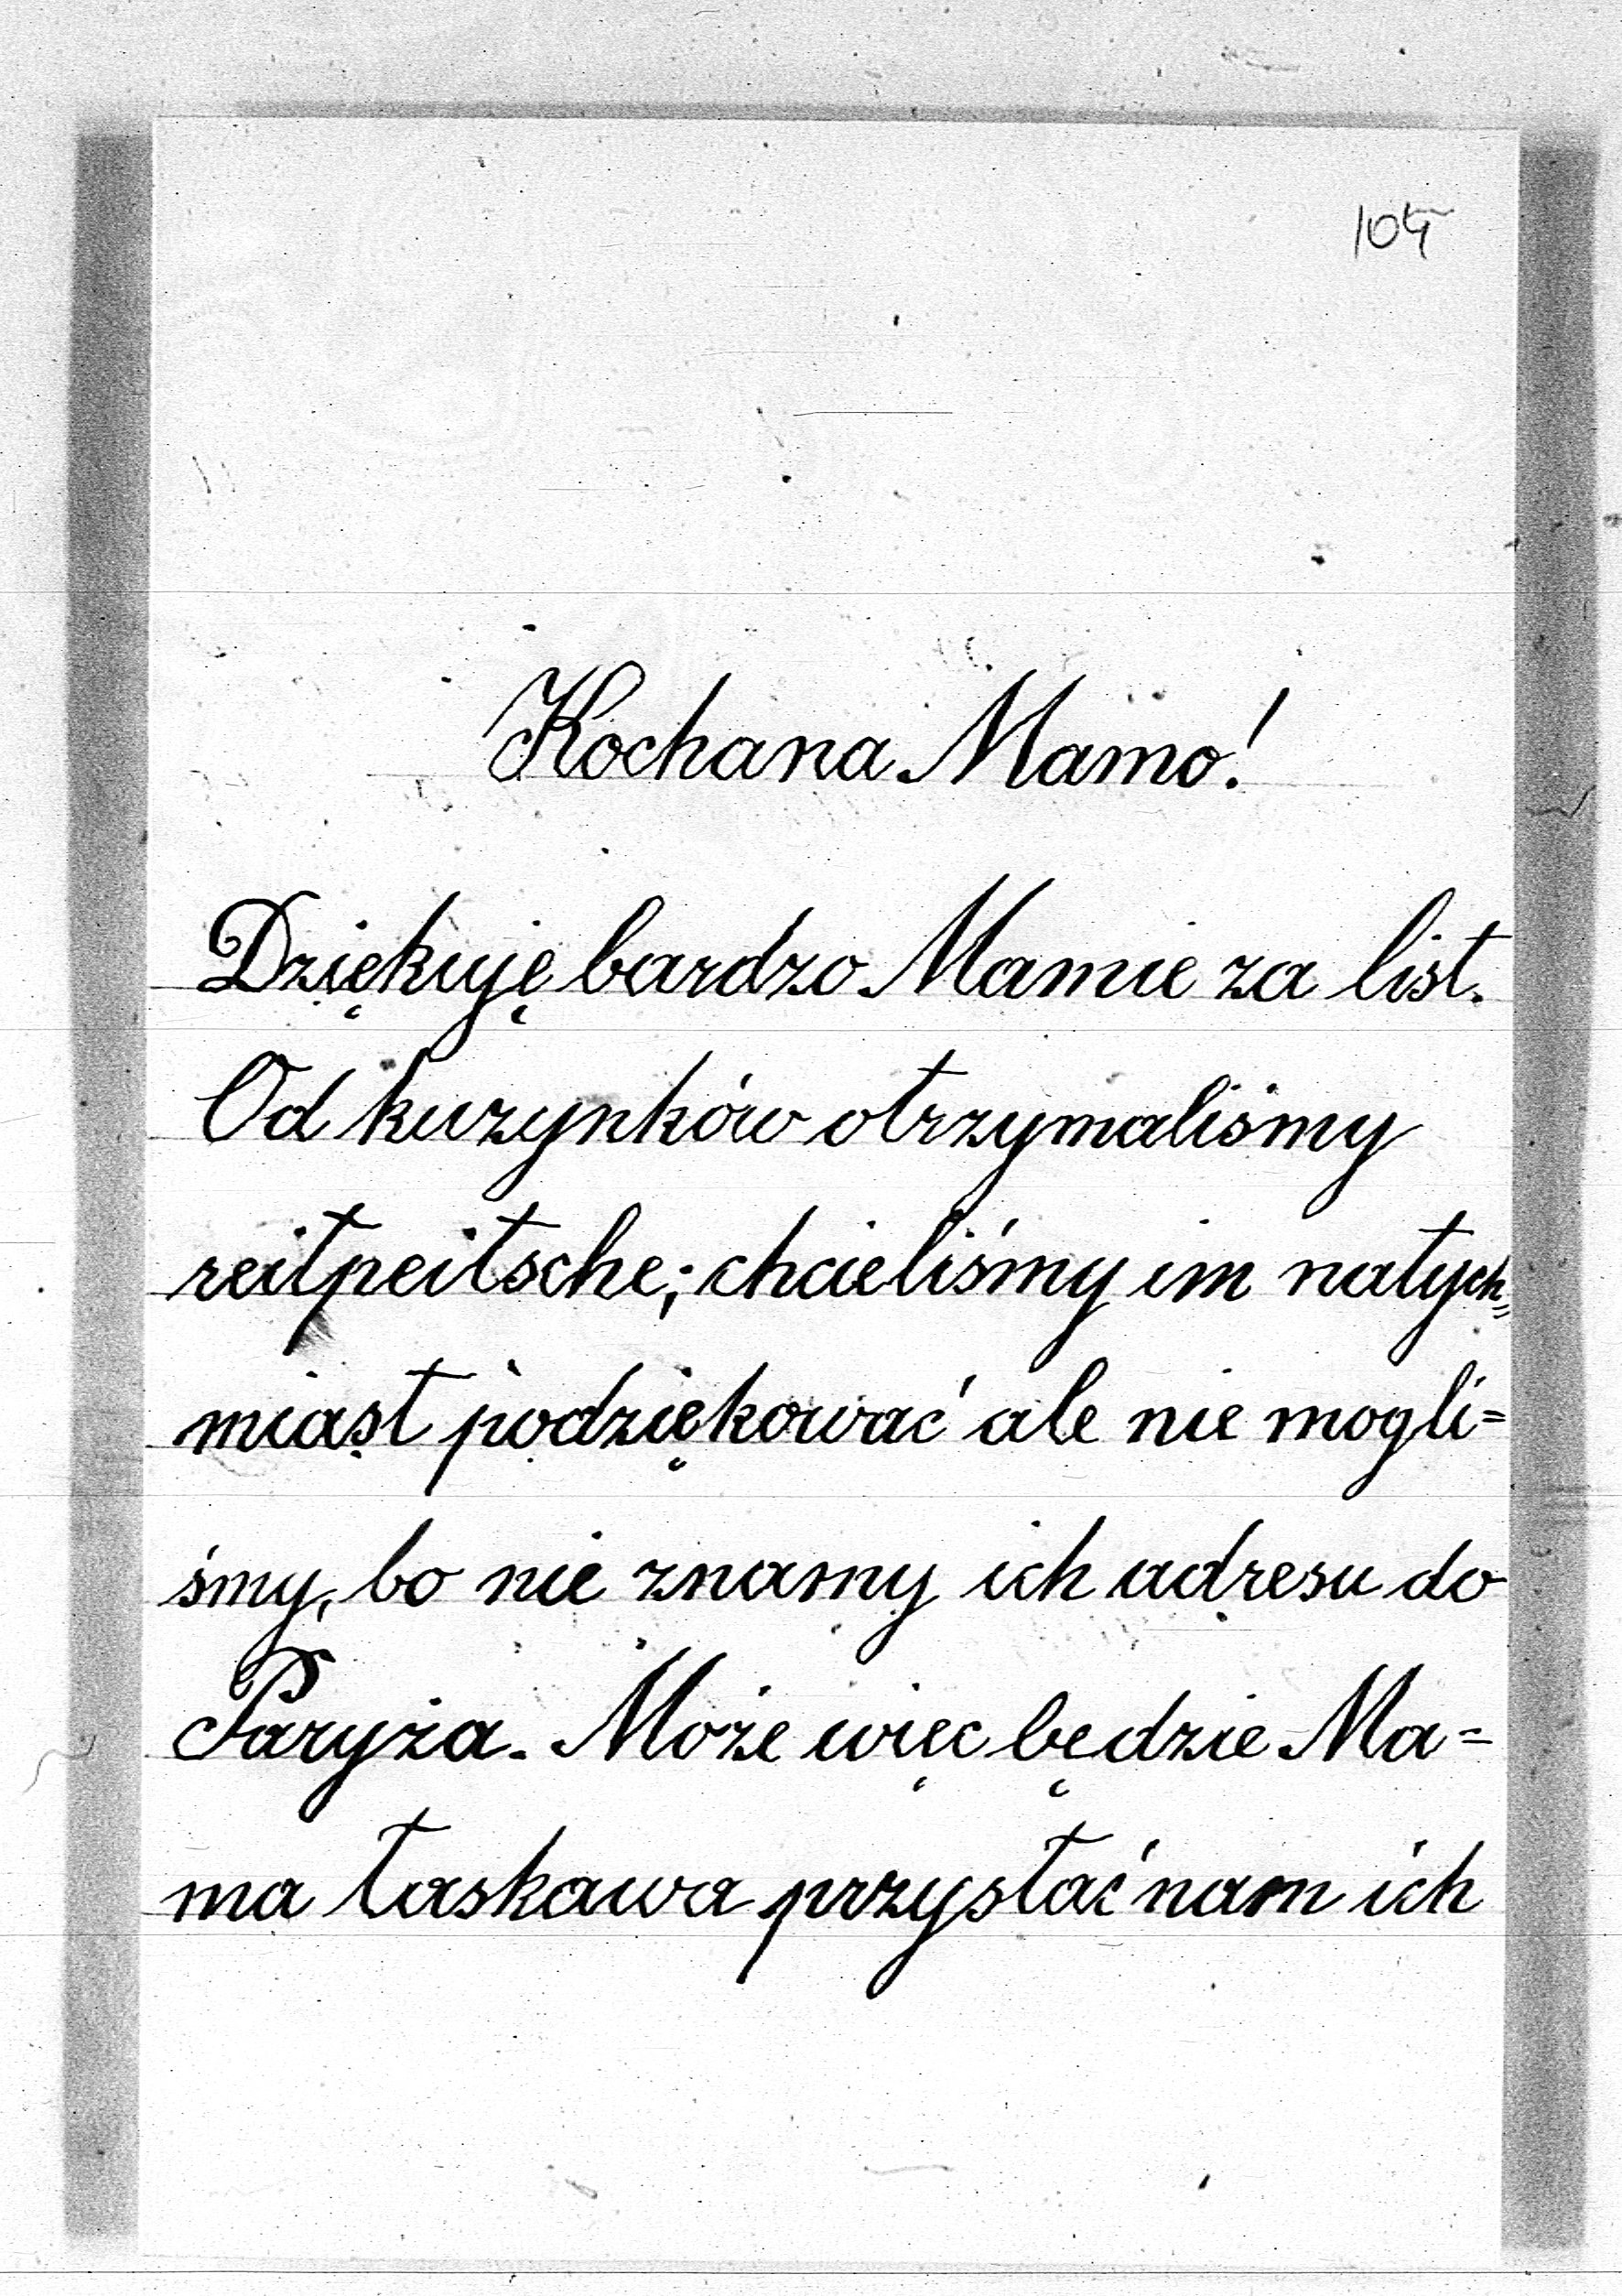 104
Kochana Mamo!
Dziękuję bardzo Mamie za list.
Od kuzynków otrzymaliśmy
reitpeitsche; chcieliśmy im natych=
miast podziękować ale nie mogli=
śmy, bo nie znamy ich adresu do
Paryża. Może więc będzie Ma=
ma łaskawa przysłać nam ich